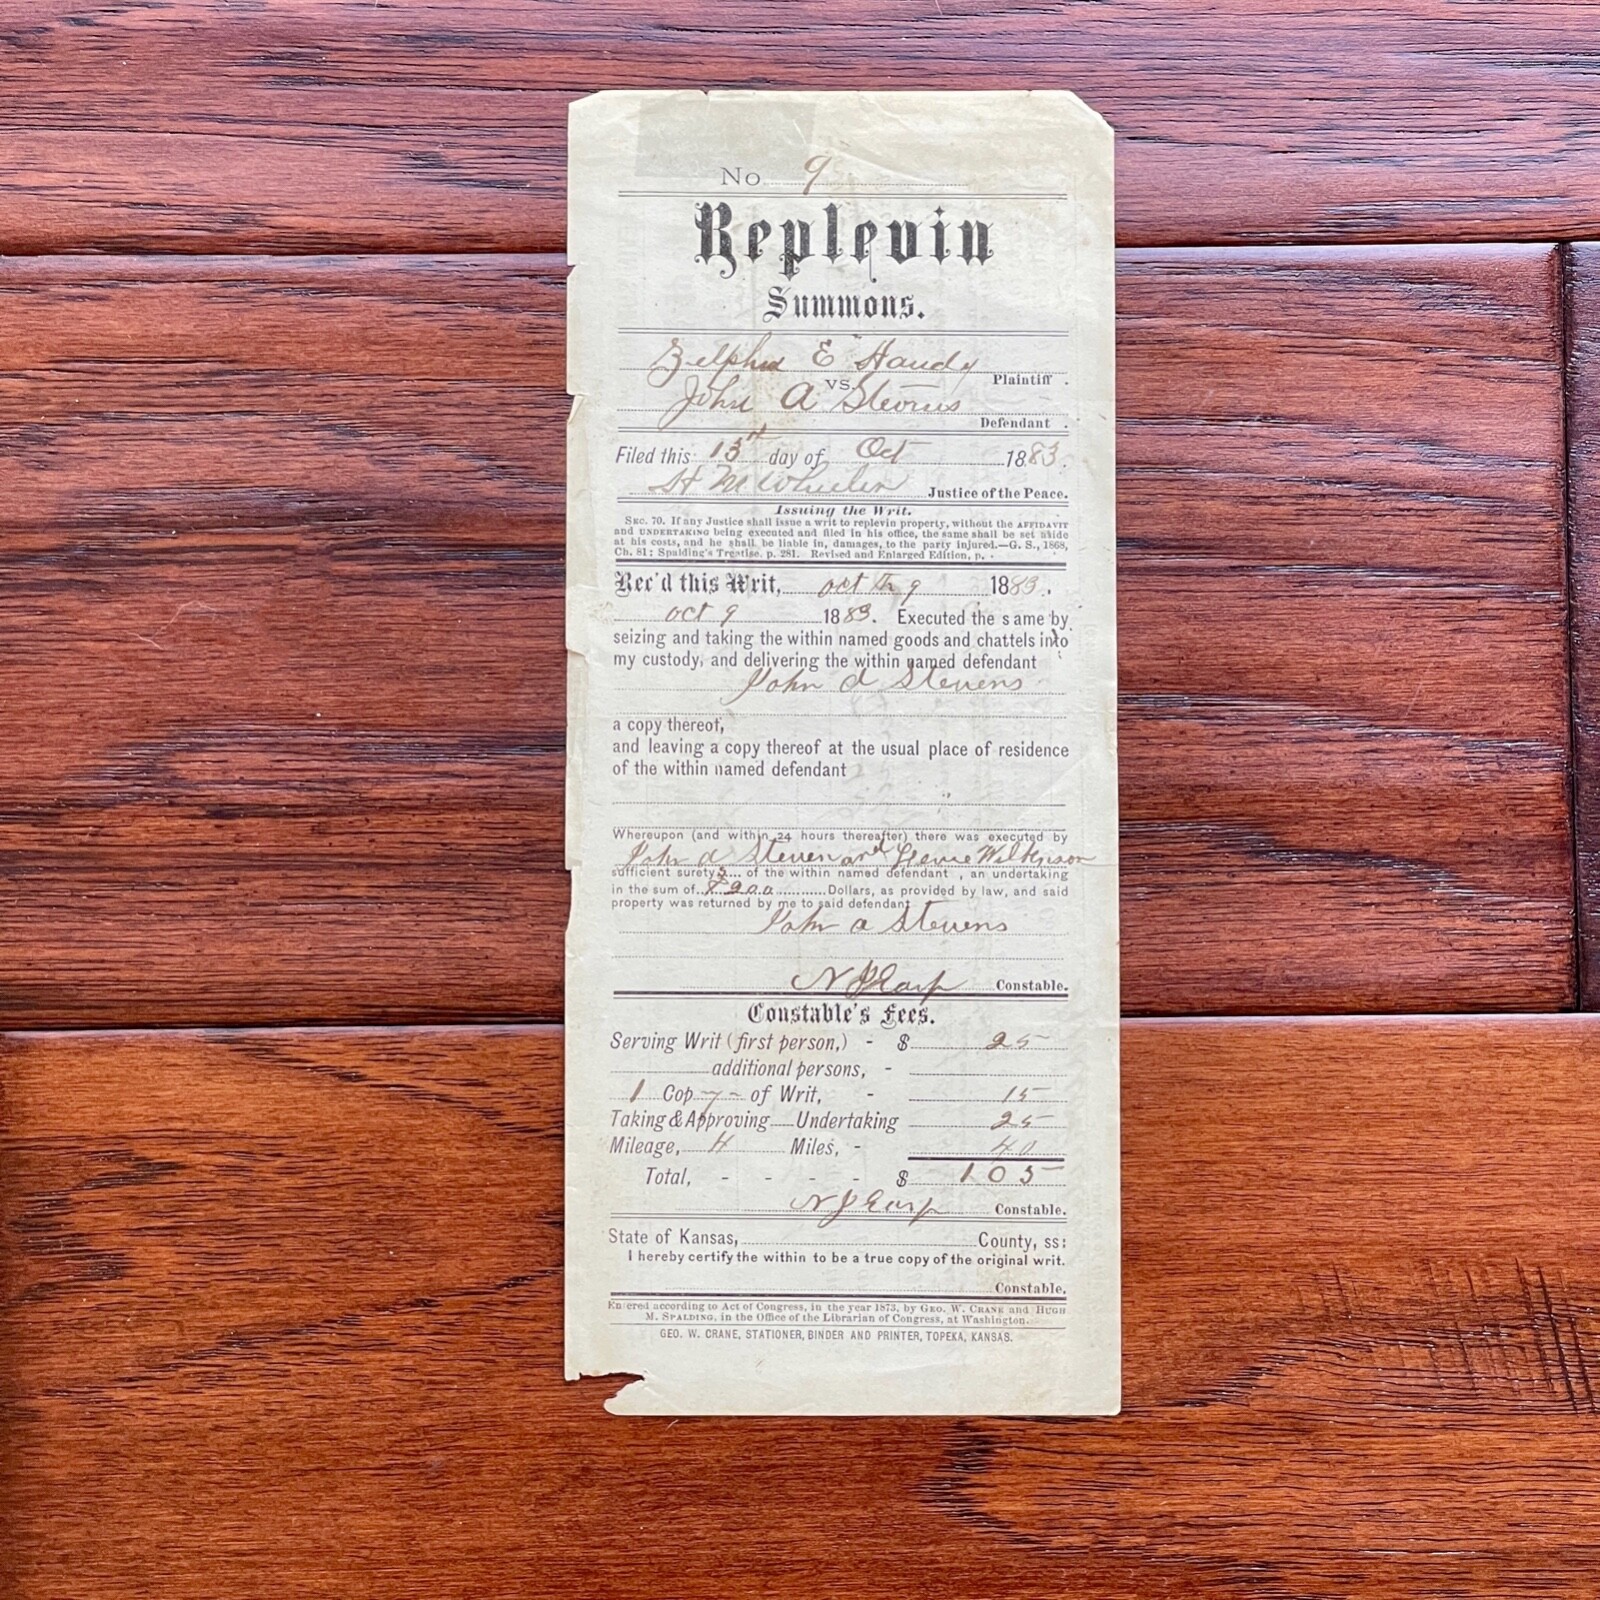 No 9
Replevin
Summons.
Zelphia E Handy
Plaintiff .
vs.
John A Stevens
Defendant .
Filed this 13th day of Oct 1883.
H M Wheeler Justice of the Peace.
Issuing the Writ.
SEC. 70. If any Justice shall issue a writ to replevin property, without the AFFIDAVIT
and UNDERTAKING being executed and filed in his office, the same shall be set aside
at his costs, and he shall be liable in, damages, to the party injured.—G. S., 1868,
Ch. 81; Spalding's Treatise. p. 281. Revised and Enlarged Edition, p, -
Rec'd this Writ, oct th 9 1883.
oct 9 1883. Executed the same by
seizing and taking the within named goods and chattels into
my custody, and delivering the within named defendant
John A Stevens
a copy thereof,
and leaving a copy thereof at the usual place of residence
of the within named defendant
Whereupon (and within 24 hours thereafter) there was executed by
John A Steven and Wilkinson
sufficient suretys of the within named defendant , an undertaking
in the sum of $200 Dollars, as provided by law, and said
property was returned by me to said defendant
John a Stevens
N J Earp Constable.
Constable's Fees.
Serving Writ (first person,) - $ 25
additional persons, -
1 Cop y - of Writ, - 15
Taking & Approving Undertaking 25
Mileage, 4 Miles, - 40
Total, - - - - $ 105
N J Earp Constable.
State of Kansas, County, ss:
I hereby certify the within to be a true copy of the original writ.
Constable.
Entered according to Act of Congress, in the year 1873, by GEO. W. CRANE and HUGH
M. SPALDING, in the Office of the Librarian of Congress, at Washington.
GEO. W. CRANE, STATIONER, BINDER AND PRINTER, TOPEKA, KANSAS.